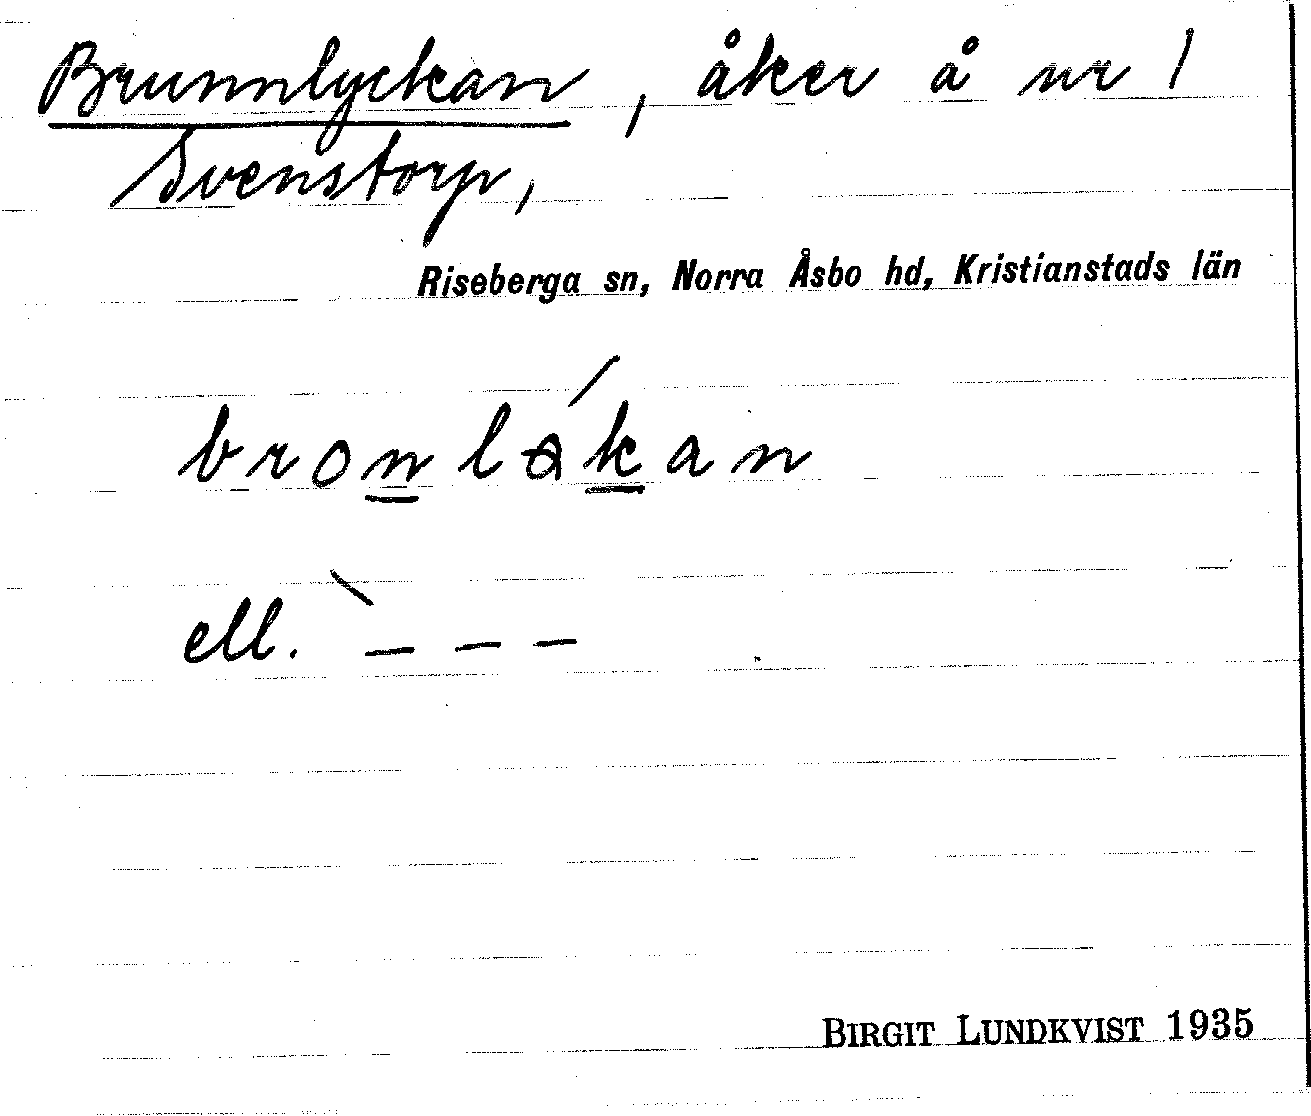 Brunnlyckan, åker å nr 1
Svenstorp,
Riseberga sn, Norra Åsbo hd, Kristianstads län
bronlákan
ell. ` – – –
BIRGIT LUNDKVIST 1935